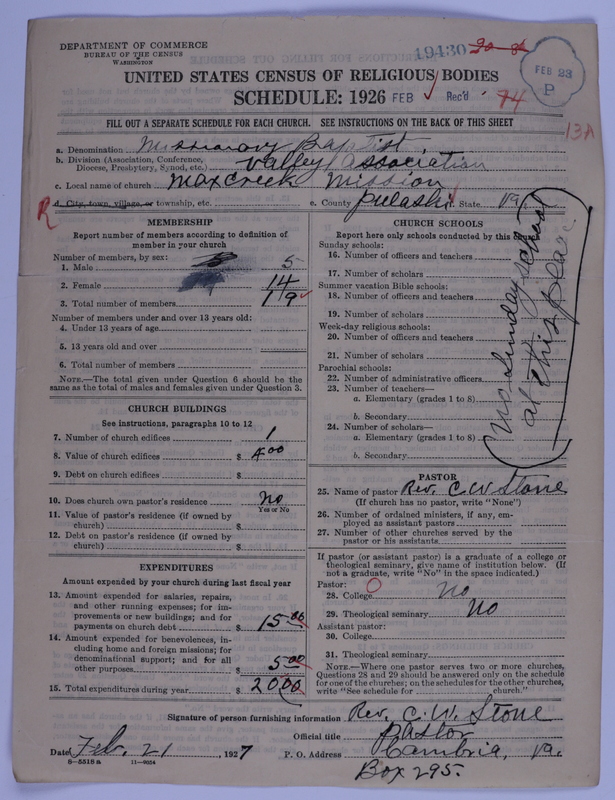 DEPARTMENT OF COMMERCE
BUREAU OF THE CENSUS
WASHINGTON
19430
FEB 23
P
UNITED STATES CENSUS OF RELIGIOUS BODIES
SCHEDULE: 1926 FEB Rec'd 74
FILL OUT A SEPARATE SCHEDULE FOR EACH CHURCH. SEE INSTRUCTIONS ON THE BACK OF THIS SHEET
13A
a. Denomination Missionary Baptist
b. Division (Association, Conference,
Diocese, Presbytery, Synod, etc.) Valley Association
c. Local name of church Max Creek Mission
R
d. City, town, village, or township, etc. e. County Pulaski f. State Va
MEMBERSHIP
Report number of members according to definition of
member in your church
Number of members, by sex:
1. Male 5
2. Female 14
3. Total number of members 19
Number of members under and over 13 years old:
4. Under 13 years of age
5. 13 years old and over
6. Total number of members
NOTE.—The total given under Question 6 should be the
same as the total of males and females given under Question 3.
CHURCH BUILDINGS
See instructions, paragraphs 10 to 12
7. Number of church edifices 1
8. Value of church edifices $ 400
9. Debt on church edifices $
10. Does church own pastor's residence No
Yes or No
11. Value of pastor's residence (if owned by
church) $
12. Debt on pastor's residence (if owned by
church) $
EXPENDITURES
Amount expended by your church during last fiscal year
13. Amount expended for salaries, repairs,
and other running expenses; for im-
provements or new buildings; and for
payments on church debt $ 15.00
14. Amount expended for benevolences, in-
cluding home and foreign missions; for
denominational support; and for all
other purposes $ 5.00
15. Total expenditures during year $ 20.00
CHURCH SCHOOLS
Report here only schools conducted by this
Sunday schools:
16. Number of officers and teachers
17. Number of scholars
Summer vacation Bible schools:
18. Number of officers and teachers
19. Number of scholars
Week-day religious schools:
20. Number of officers and teachers
21. Number of scholars
Parochial schools:
22. Number of administrative officers
23. Number of teachers—
a. Elementary (grades 1 to 8)
b. Secondary
24. Number of scholars—
a. Elementary (grades 1 to 8)
b. Secondary
No Sunday school
at this place
PASTOR
25. Name of pastor Rev. C. W Stone
(If church has no pastor, write "None")
26. Number of ordained ministers, if any, em-
ployed as assistant pastors
27. Number of other churches served by the
pastor or his assistants
If pastor (or assistant pastor) is a graduate of a college or
theological seminary, give name of institution below. (If
not a graduate, write "No" in the space indicated.)
Pastor: O
28. College No
29. Theological seminary No
Assistant pastor:
30. College
31. Theological seminary
NOTE.—Where one pastor serves two or more churches,
Questions 28 and 29 should be answered only on the schedule
for one of the churches; on the schedules for the other churches,
write "See schedule for church."
Signature of person furnishing information Rev. C. W. Stone
Official title Pastor
Date Feb. 21, 1927 P. O. Address Cambria, Va.
8—5518a 11—9034
Box 295.